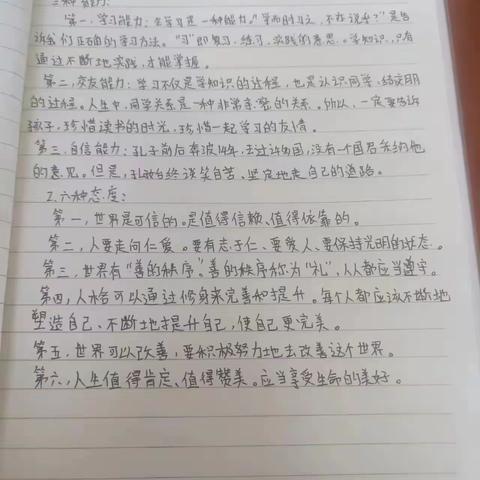 三种能力:
第一,学习能力:会学习是一种能力。"学而时习之,不亦说乎?"是告
诉我们正确的学习方法。"习"即复习、练习、实践的意思。学知识,只有
通过不断地实践,才能掌握。
第二,交友能力:学习不仅是学知识的过程,也是认识同学、结交朋
的过程。人生中,同学关系是一种非常亲密的关系。所以,一定要告诉
孩子,珍惜读书的时光,珍惜一起学习的友情。
第三,自信能力:孔子前后奔波14年,去过许多国,没有一个国君采纳他
的意见。但是,孔始终谈笑自若、坚定地走自己的道路。
2.六种态度:
第一,世界是可信的。是值得信赖、值得依靠的。
第二,人要走向仁爱。要有志于仁、要爱人、要保持光明的状态。
第三,世界有"善的秩序"。善的秩序称为"礼",人人都应当遵守。
第四,人格可以通过修身来完善和提升。每个人都应该不断地
塑造自己、不断地提升自己,使自己更完美。
第五,世界可以改善,要积极努力地去改善这个世界。
第六,人生值得肯定、值得赞美。应当享受生命的美好。